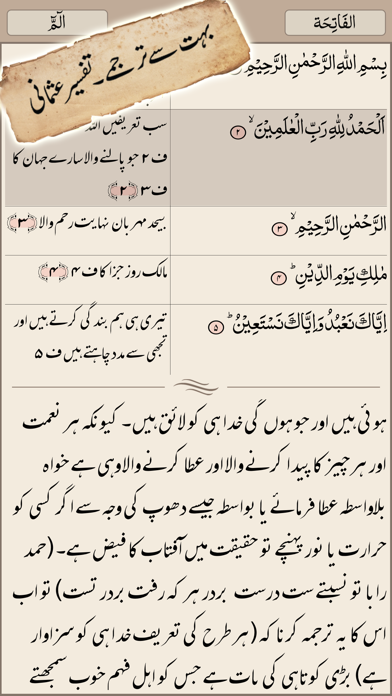 الفَاتِحَة
الٓمّٓ
بہت سے ترجمے۔ تفسیر عثمانی
بِسْمِ اللّٰهِ الرَّحْمٰنِ الرَّحِيْمِ
اَلْحَمْدُ لِلّٰهِ رَبِّ الْعٰلَمِيْنَ ۙ ۲
سب تعریفیں اللہ
ف ۲ جو پالنے والا سارے جہان کا
ف ۳ ﴿۲﴾
الرَّحْمٰنِ الرَّحِيْمِ ۙ ۳
بیحد مہربان نہایت رحم والا ﴿۳﴾
مٰلِكِ يَوْمِ الدِّيْنِ ؕ ۴
مالک روز جزا کا ف ۴ ﴿۴﴾
اِيَّاكَ نَعْبُدُ وَاِيَّاكَ نَسْتَعِيْنُ ؕ ۵
تیری ہی ہم بندگی کرتے ہیں اور
تجھی سے مدد چاہتے ہیں ف ۵
ہوئی ہیں اور جو ہوں گی خدا ہی کو لائق ہیں۔ کیونکہ ہر نعمت
اور ہر چیز کا پیدا کرنے والا اور عطا کرنے والا وہی ہے خواہ
بلاواسطہ عطا فرمائے یا بواسطہ جیسے دھوپ کی وجہ سے اگر کسی کو
حرارت یا نور پہنچے تو حقیقت میں آفتاب کا فیض ہے۔ (حمد
را با تو نسبتے ست درست بر در ہر کہ رفت بر در تست) تو اب
اس کا یہ ترجمہ کرنا کہ (ہر طرح کی تعریف خدا ہی کو سزاوار
ہے) بڑی کوتاہی کی بات ہے جس کو اہل فہم خوب سمجھتے